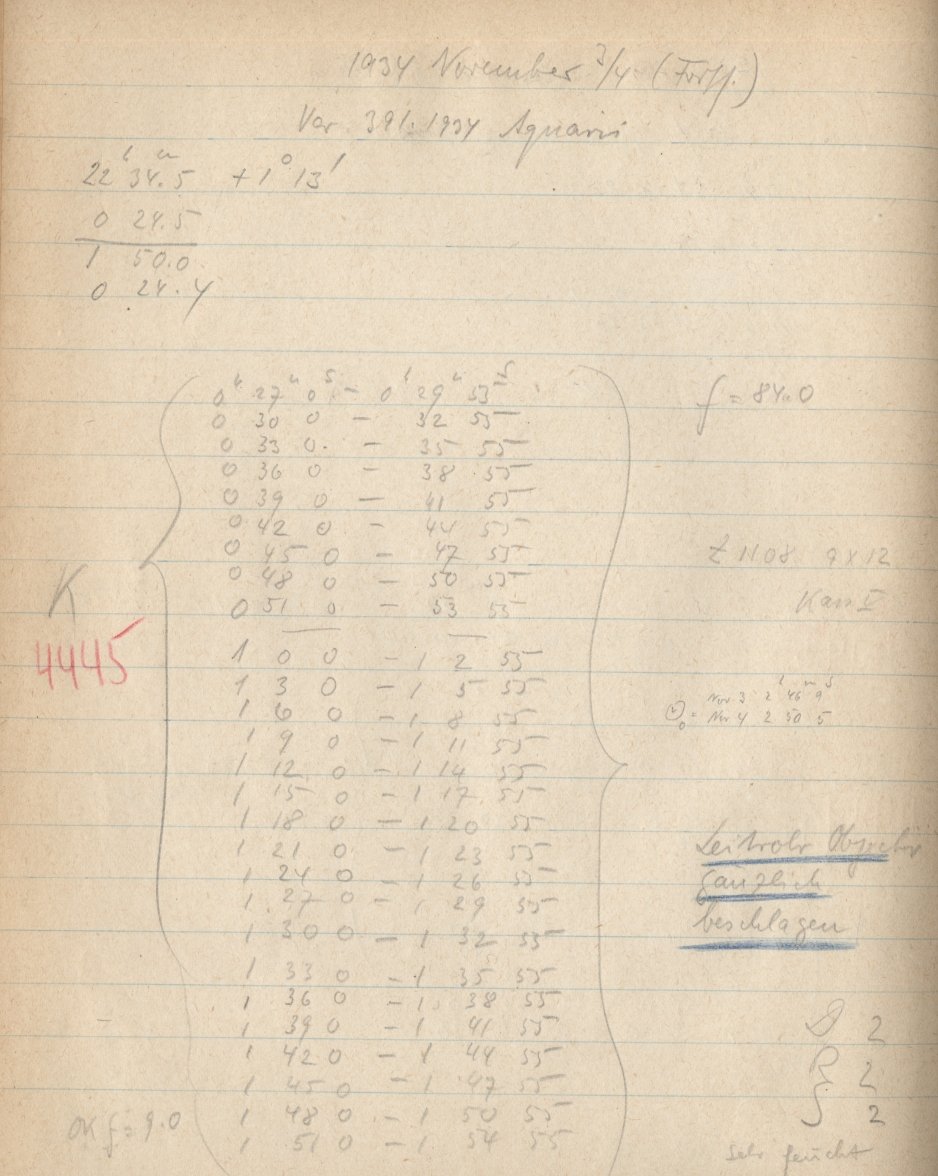 1934 November 3/4 (Forts.)
Var 391.1934 Aquarii
22h 34m.5 +1° 13'
0 24.5
1 50.0
0 24.4
0h 27m 0s - 0h 29m 53s
0 30 0 - 32 55
0 33 0 - 35 55
0 36 0 - 38 55
0 39 0 - 41 55
0 42 0 - 44 55
0 45 0 - 47 55
0 48 0 - 50 55
0 51 0 - 53 55
1 0 0 - 1 2 55
1 3 0 - 1 5 55
1 6 0 - 1 8 55
1 9 0 - 1 11 55
1 12 0 - 1 14 55
1 15 0 - 1 17 55
1 18 0 - 1 20 55
1 21 0 - 1 23 55
1 24 0 - 1 26 55
1 27 0 - 1 29 55
1 30 0 - 1 32 55
1 33 0 - 1 35 55
1 36 0 - 1 38 55
1 39 0 - 1 41 55
1 42 0 - 1 44 55
1 45 0 - 1 47 55
1 48 0 - 1 50 55
1 51 0 - 1 54 55
K
4445
f = 84.0
Z 1108 9 x 12
Kass II
Nov 3 2h 46m 9s
Nov 4 2 50 5
Leitrohr Objectiv
gänzlich
beschlagen
D 2
R 2
2
sehr feucht
OK f = 9.0